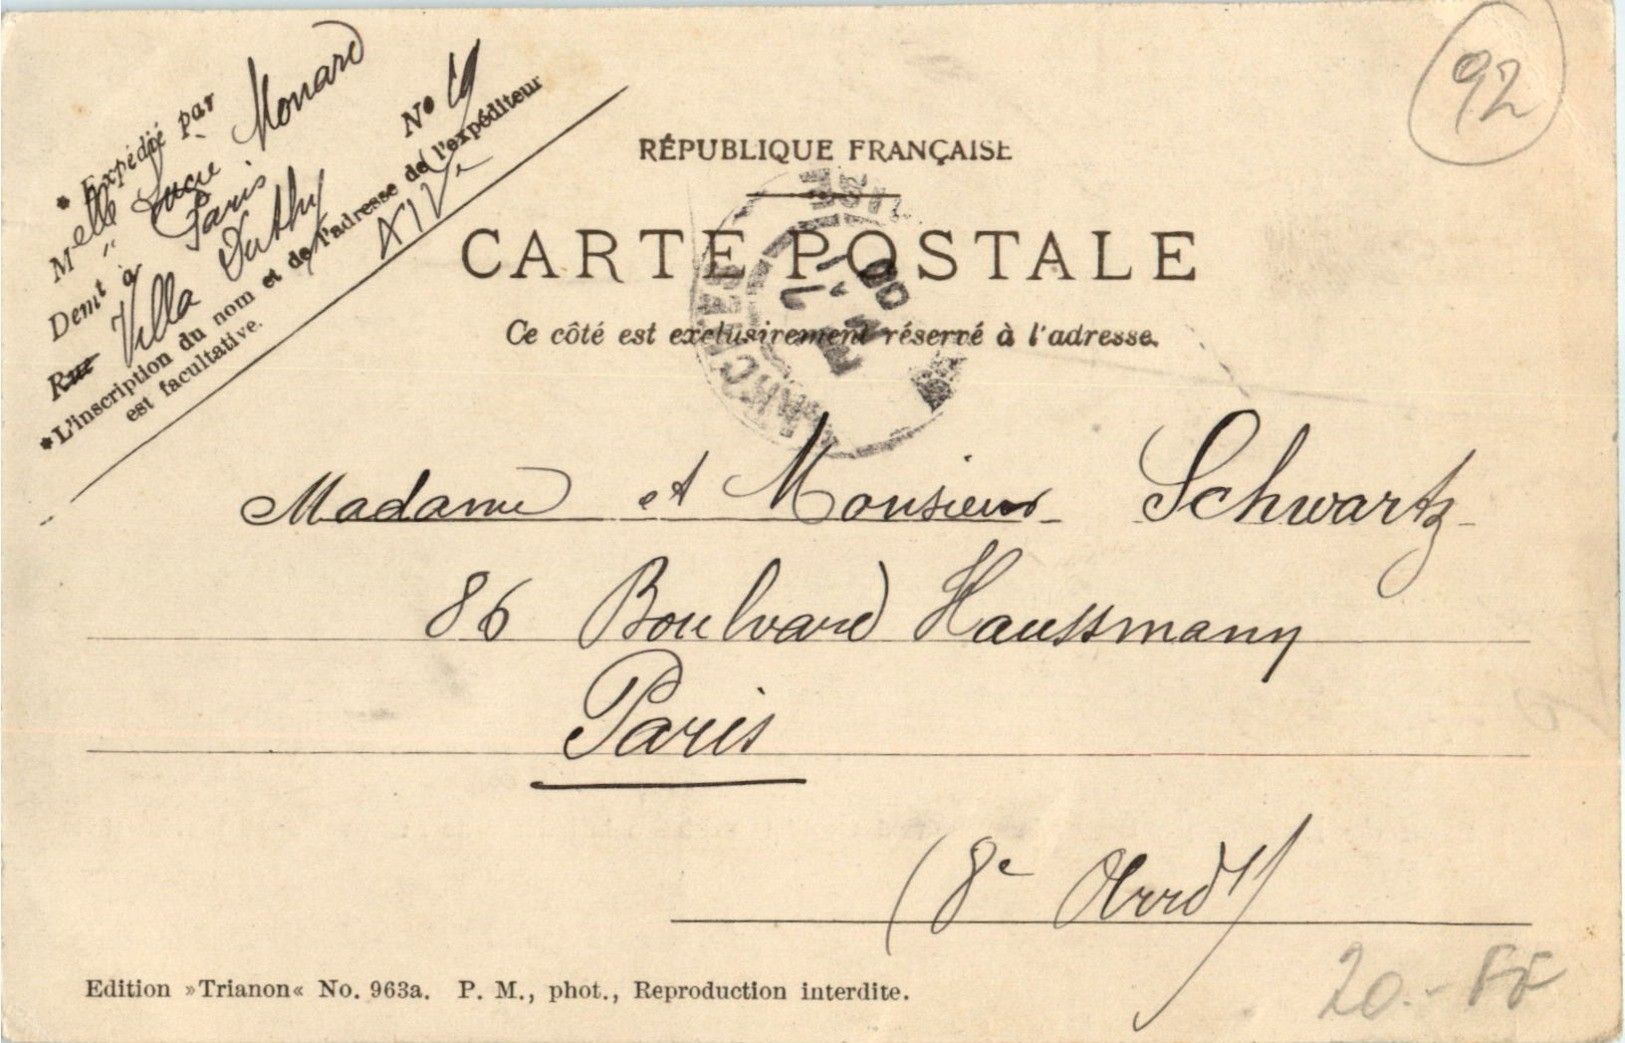 * Expédié par
Melle Lucie Monard
Demt à " Paris
Rue Villa Duthy No 19
*L'inscription du nom et de l'adresse de l'expéditeur
est facultative.
XIVe
92
RÉPUBLIQUE FRANÇAISE
CARTE POSTALE
Ce côté est exclusivement réservé à l'adresse.
GARCHES
Madame et Monsieur Schwartz
86 Boulvard Haussmann
Paris
(8e Arrdt)
Edition »Trianon« No. 963a. P. M., phot., Reproduction interdite.
20.- FF